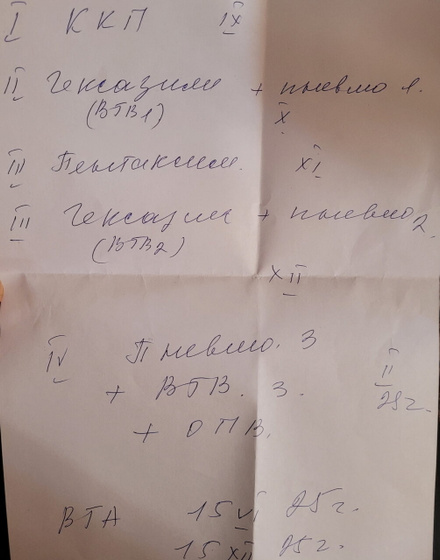 I ККП IX
II Гексаксим + пневмо 1.
(ВГВ1) X
III Пентаксим. XI
III Гексаксим + пневмо 2
(ВГВ2)
XII
IV Пневмо. 3 II
+ ВГВ. 3. 25г.
+ ОПВ.
ВГА 15 VI 25г.
15 XII 25г.